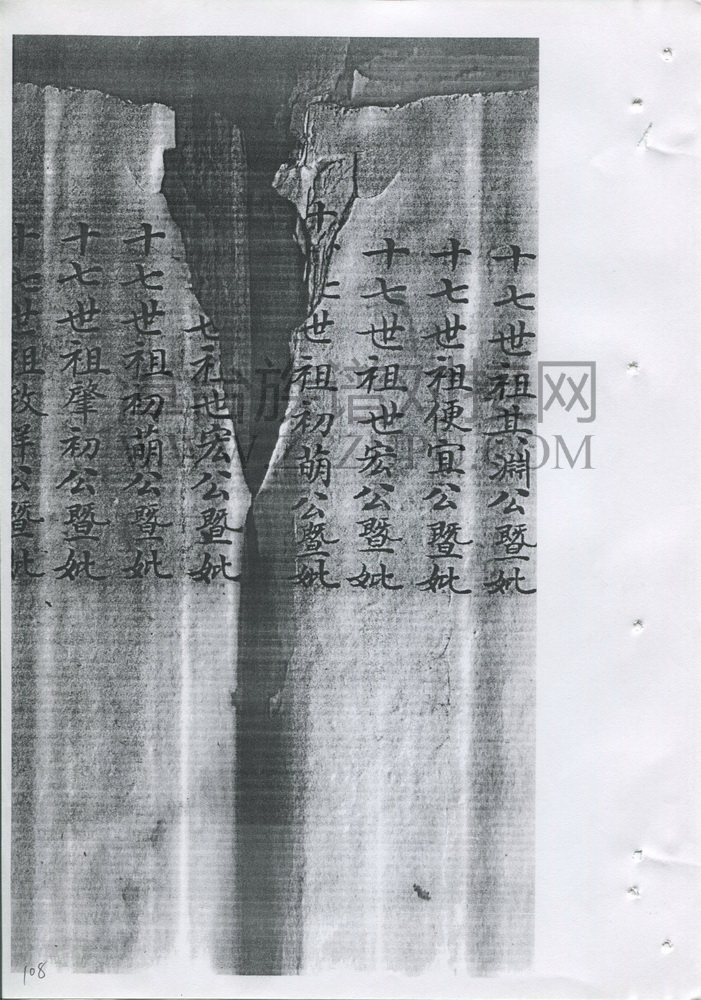 十七世祖其淵公暨妣
十七世祖便宜公暨妣
十七世祖世宏公暨妣
十世祖初萌公暨妣
七祖世宏公暨妣
十七世祖初萌公暨妣
十七世祖肇初公暨妣
十七世祖公暨妣
族譜网
108